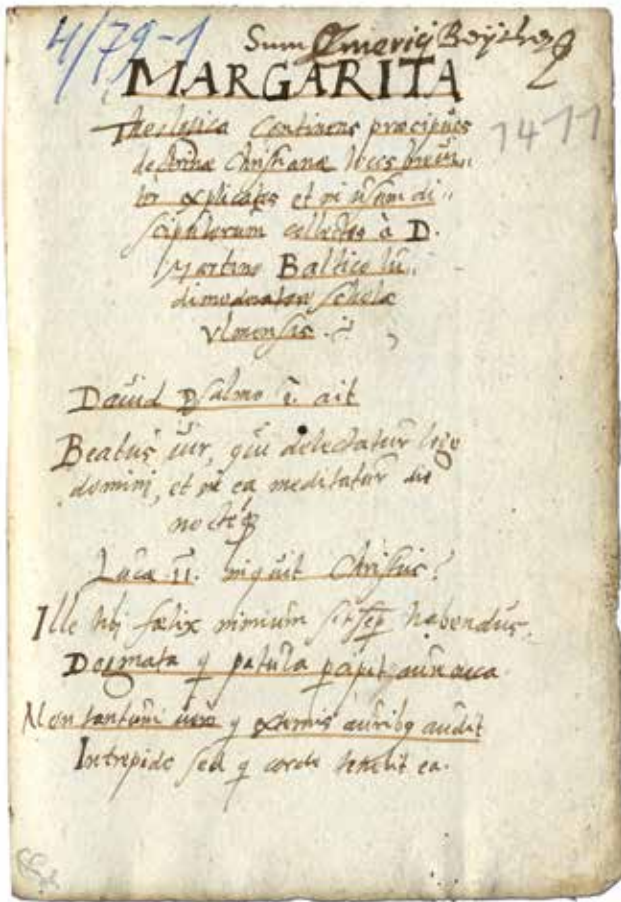 4/79-1
Sum Emerici
MARGARITA
Theologica continens præcipuos
1411
doctrinæ Christianæ locos breui„
ter explicatos et in usum di„
scipulorum collectos à D.
Martino Baltico lu„
dimoderatore scholæ
Vlmensis
Dauid Psalmo 1. ait
Beatus uir, qui delectatur lege
domini, et in ea meditatur die
noctéq
Lucæ 11. inquit Christus
Ille mihi fœlix nimium sit semp habendus
Dogmata q patula aure
Non tantum uero q externis auribq audit
Intrepido sed q corde tenuit ea.